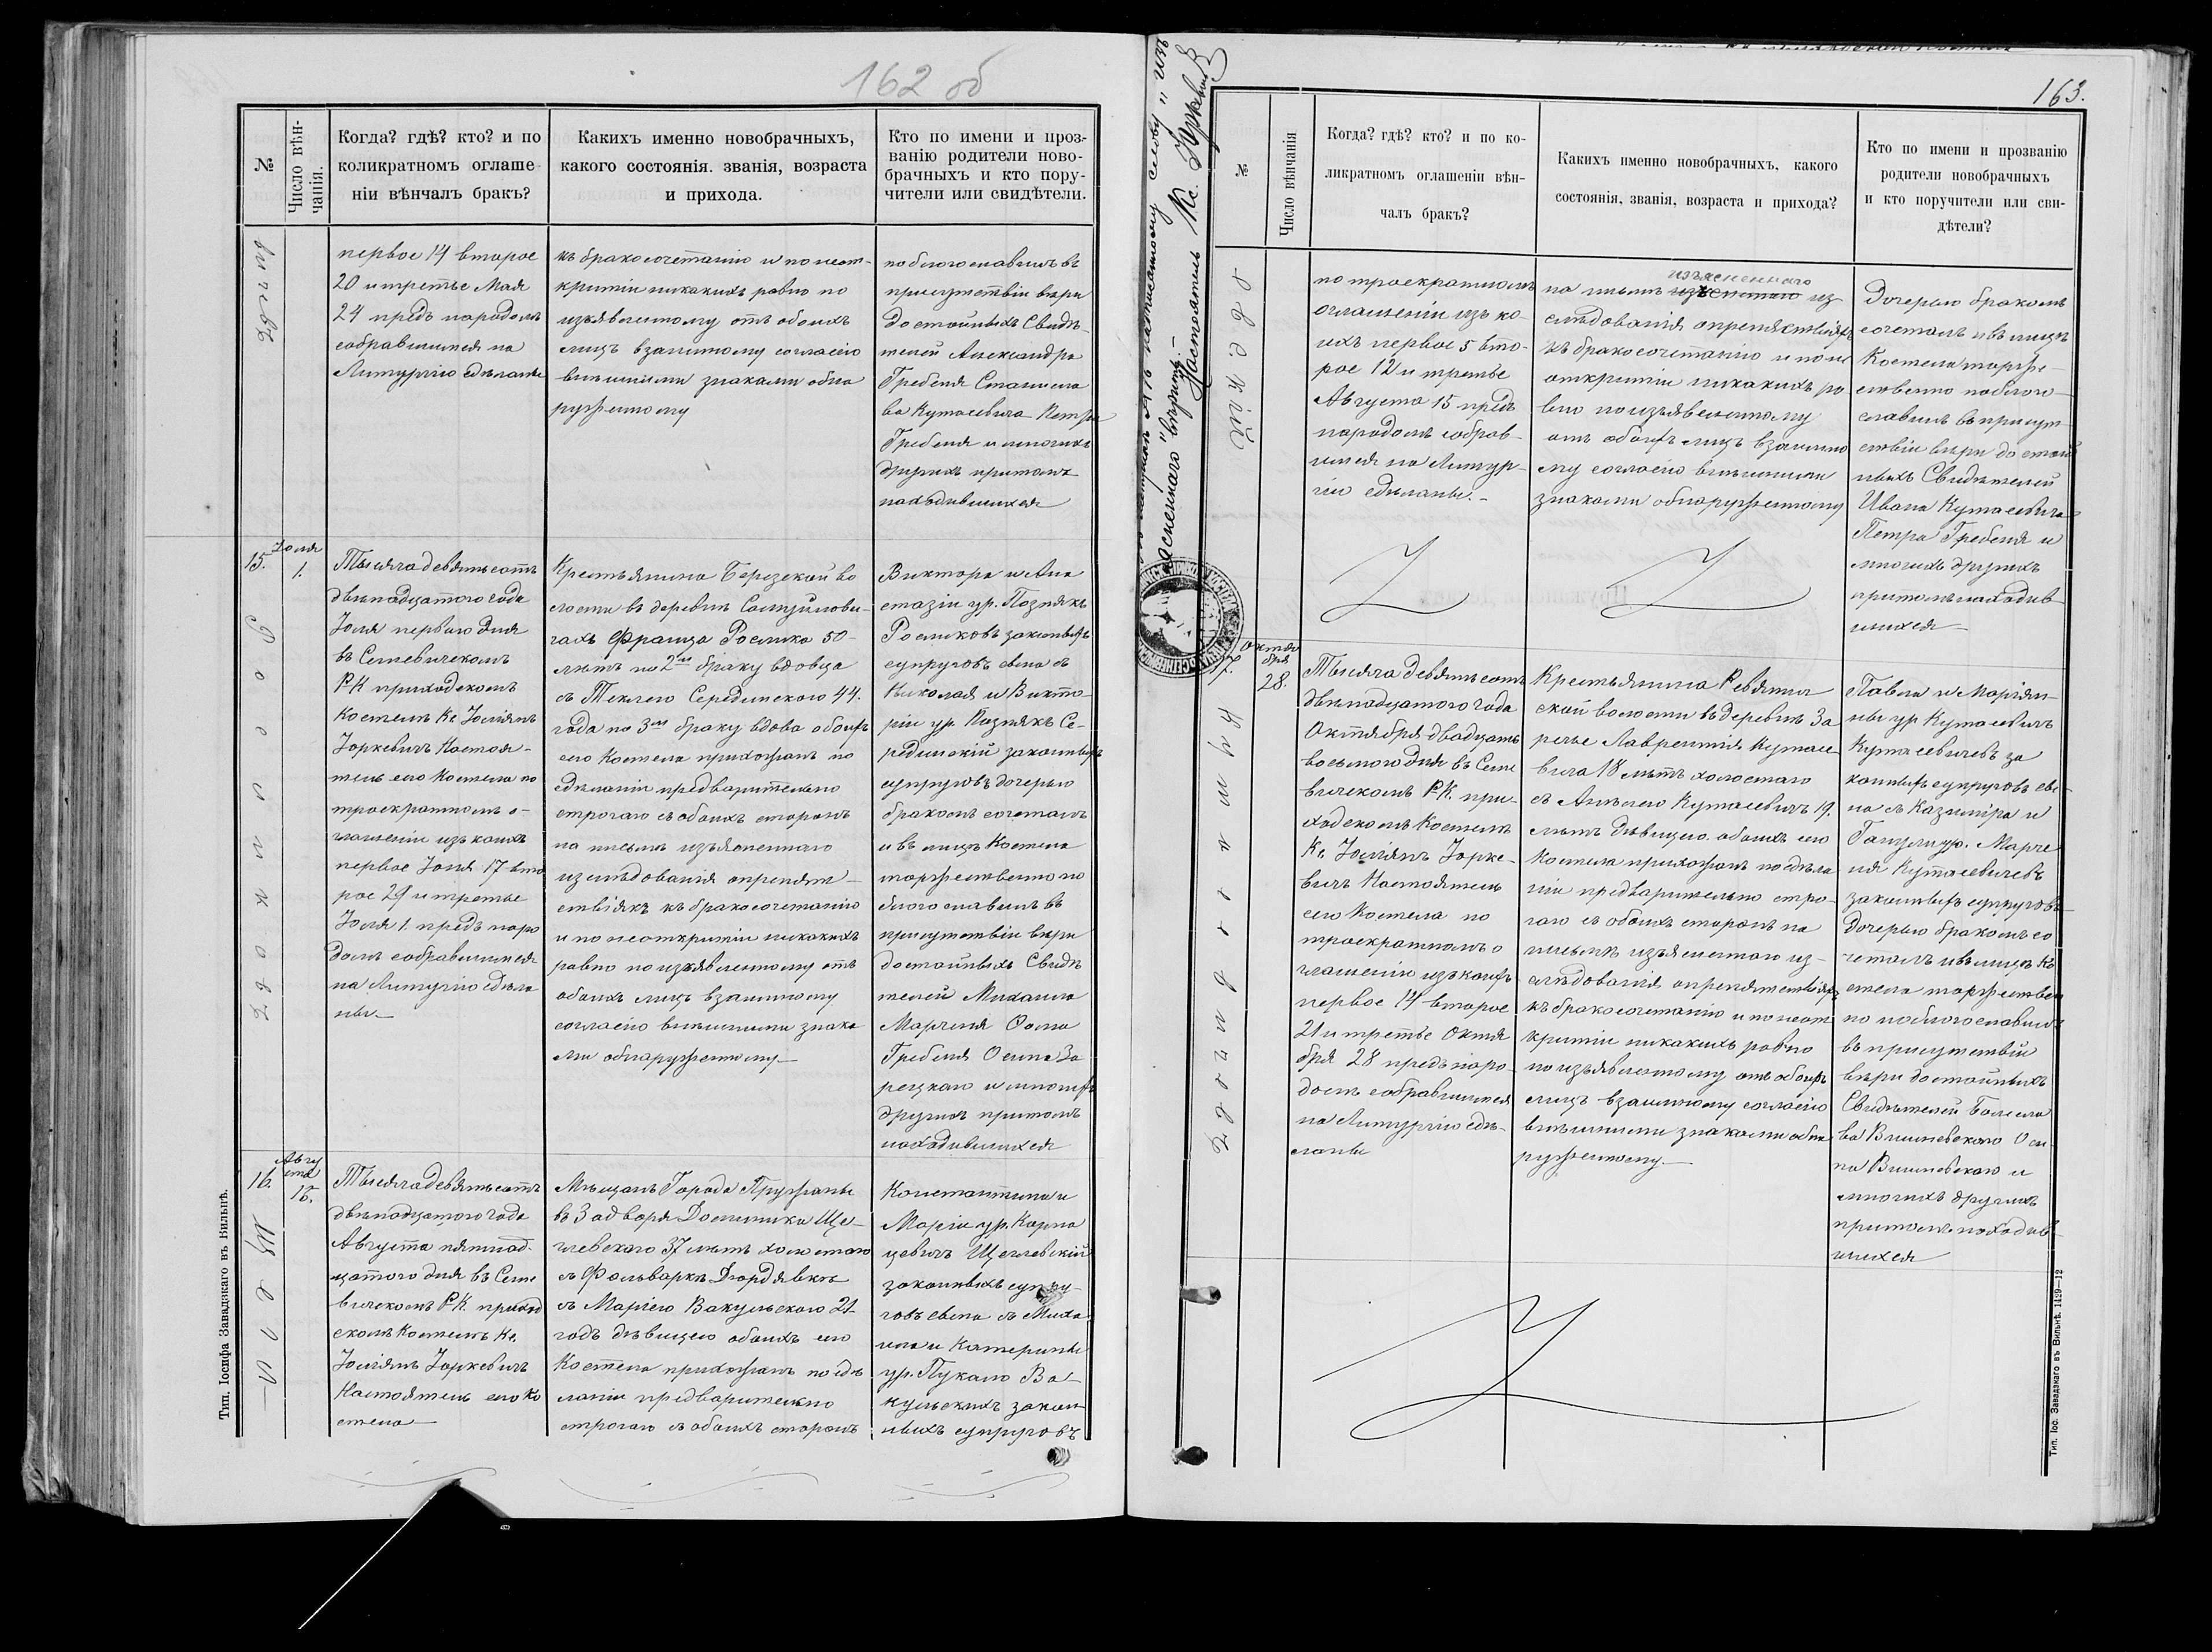 162 об
№
Число вѣн-
чанія.
Когда? гдѣ? кто? и по
коликратномъ оглаше-
ніи вѣнчалъ бракъ?
Какихъ именно новобрачныхъ,
какого состоянія. званія, возраста
и прихода.
Кто по имени и проз-
ванію родители ново-
брачныхъ и кто пору-
чители или свидѣтели.
первое 14 второе
20 и третье Мая
24 предъ народомъ
собравшимся на
Литургію сдѣланы
къ бракосочетанію и по неот-
крытіи никакихъ равно по
изъявленному отъ обоихъ
лицъ взаимному согласію
внѣшними знаками обна
руженному
поблагославилъ въ
присутствіи вѣры
достойныхъ Свидѣ-
телей Александра
Гребеня Станисла
ва Кутасевича Петра
Гребеня и многихъ
другихъ притомъ
находившихся
15.
Іюля
1.
Росликовъ
Тысяча девятьсотъ
двѣнадцатого года
Іюля первого дня
въ Селевичскомъ
Р-К приходскомъ
Костелѣ Кс Юліянъ
Юркевичъ Настоя-
тель сего Костела по
троекратномъ о-
глашеніи изъ коихъ
первое Іюня 17 вто
рое 29 и третье
Іюля 1. предъ наро
домъ собравшимся
на Литургію сдѣла
ны.—
Крестьянина Березской во
лости въ деревнѣ Самуйлови-
чахъ Франца Рослика 50-
лѣтъ по 2мъ браку вдовца
съ Теклею Серединскою 44.
года по 3мъ браку вдова обоихъ
сего Костела прихожанъ по
сдѣланіи предварительно
строгаго съ обоихъ сторонъ
на письмѣ изъясненнаго
изслѣдованія опрепят-
ствіяхъ къ бракосочетанію
и по неоткрытіи никакихъ
равно по изъявленному отъ
обоихъ лицъ взаимному
согласію внѣшними знака
ми обнаруженному—
Виктора и Ана
стазіи ур. Познякъ
Росликовъ законныхъ
супруговъ сына съ
Николая и Викто-
ріи ур Познякъ Се-
рединскій законныхъ
супруговъ дочерью
бракомъ сочеталъ
и въ лицѣ Костела
торжественно по
благославилъ въ
присутствіи вѣры
достойныхъ Свидѣ
телей Михаила
Марченя Фома
Гребеня Осипа За
рецкаго и многихъ
другихъ притомъ
находившихся
16.
Авгу
ста
15.
Щегл-
Тысяча девятьсотъ
двѣнадцатого года
Августа пятнад-
цатого дня въ Селе
вичскомъ Р-К приход
скомъ Костелѣ Кс.
Юліянъ Юркевичъ
Настоятель сего Ко
стела—
Мѣщанъ Города Пружаны
въ Задворя Доминика Ще-
глевскаго 37 лѣтъ холостаго
съ Фольварка Дюрдявки
съ Маріею Вакульскою 21
годъ дѣвицею обоихъ сего
Костела прихожанъ по сдѣ
ланіи предварительно
строгаго съ обоихъ сторонъ
Константина и
Маріи ур. Карпа
цевичъ Щеглевскій
законныхъ супру-
говъ сына съ Миха
ила и Катерины
ур. Пукало Ва-
кульскихъ закон
ныхъ супруговъ
Тип. Іосифа Завадзкаго въ Вильнѣ.
163.
Настоятель Кс. Юркевичъ
№
Число вѣнчанія
Когда? гдѣ? кто? и по ко-
ликратномъ оглашеніи вѣн-
чалъ бракъ?
Какихъ именно новобрачныхъ, какого
состоянія, званія, возраста и прихода?
Кто по имени и прозванію
родители новобрачныхъ
и кто поручители или сви-
дѣтели?
евскій
по троекратномъ
оглашеніи изъ ко-
ихъ первое 5 вто-
рое 12 и третье
Августа 15 предъ
народомъ собрав-
шимся на Литур-
гіи сдѣланы.-
изъясненнаго
на письмѣ из
слѣдованія опрепятствіяхъ
къ бракосочетанію и по не
открытіи никакихъ ра
вно по изъявленному
отъ обоихъ лицъ взаимно
му согласію внѣшними
знаками обнаруженному
Дочерью бракомъ
сочеталъ и въ лицѣ
Костела торже-
ственно поблаго-
славилъ въ присут
ствіи вѣры достой
ныхъ Свидѣтелей
Ивана Кутасевича
Петра Гребеня и
многихъ другихъ
притомъ находив
шихся
17.
Октя
бря
28.
Кутасевичовъ
Тысяча девятьсотъ
двѣнадцатого года
Октября двадцать
восьмого дня въ Селе
вичскомъ Р-К. при-
ходскомъ Костелѣ
Кс. Юліянъ Юрке-
вичъ Настоятель
сего Костела по
троекратномъ о
глашеніи изъ коихъ
первое 14 второе
21 и третье Октя
бря 28 предъ наро-
домъ собравшимся
на Литургію сдѣ-
ланы
Крестьянина Ревятич
ской волости въ деревнѣ За
речье Лаврентія Кутасе
вича 18 лѣтъ холостаго
съ Анелею Кутасевичъ 19.
лѣтъ дѣвицею обоихъ сего
Костела прихожанъ по сдѣла
ніи предварительно стро-
гаго съ обоихъ сторонъ на
письмѣ изъясненнаго из-
слѣдованія опрепятствіяхъ
къ бракосочетанію и по неот
крытіи никакихъ равно
по изъявленному отъ обоихъ
лицъ взаимному согласію
внѣшними знаками обна
руженному.—
Павла и Маріян-
ны ур Кутасевичъ
Кутасевичевъ за
конныхъ супруговъ сы-
на съ Казиміра и
ур. Марче
ня Кутасевичевъ
законныхъ супруговъ
дочерью бракомъ со
четалъ и въ лицѣ Ко
стела торжествен
но поблагославилъ
въ присутствіи
вѣры достойныхъ
Свидѣтелей Болесла
ва Вишневскаго Оси
па Вишневскаго и
многихъ другихъ
притомъ находив-
шихся
Тип. Іос. Завадзкаго въ Вильнѣ. 1429—12